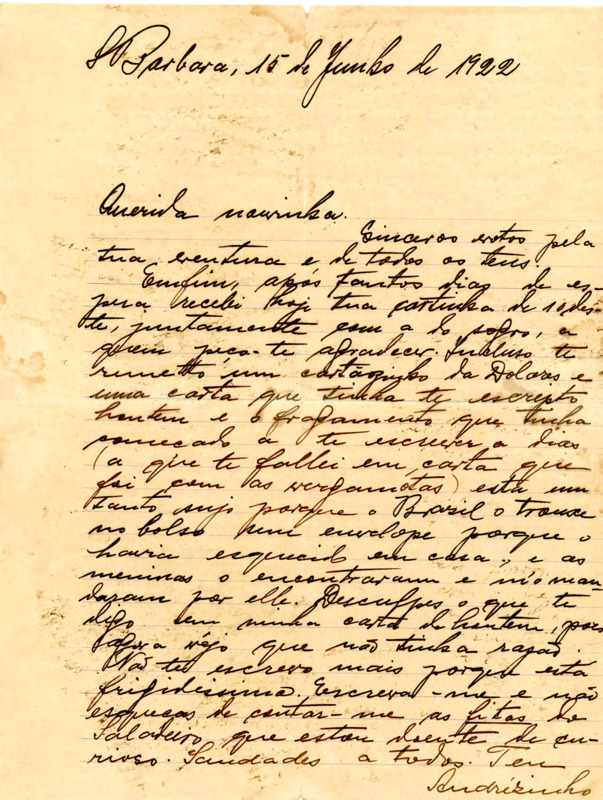 Sª Barbara, 15 de Junho de 1922
Querida noivinha.
Sinceros votos pela
tua ventura e de todos os teus.
Emfim, após tantos dias de es-
pera recebi hoje tua cartinha de 10 des-
te, juntamente com a do sogro, a
quem peço-te agradecer. Incluso te
remetto um cartãosinho da Dolores e
uma carta que tinha te escripto
hontem e o fragamento que tinha
começado a te escrever a dias
(a que te fallei em carta que
foi com as vergamotas) está um
tanto sujo porque o Brazil o trouxe
no bolso sem envelope porque o
havia esquecid em casa, e as
meninas o encontraram e m'o man-
daram por elle. Desculpes o que te
digo em minha carta de hontem, pois
agora vejo que não tinha razão.
Não te escrevo mais porque está
frigidissimo. Escreva-me e não
esqueças de contar-me as fitas do
Saladeiro que estou doente de cu-
rioso. Saudades a todos. Teu
Andrézinho